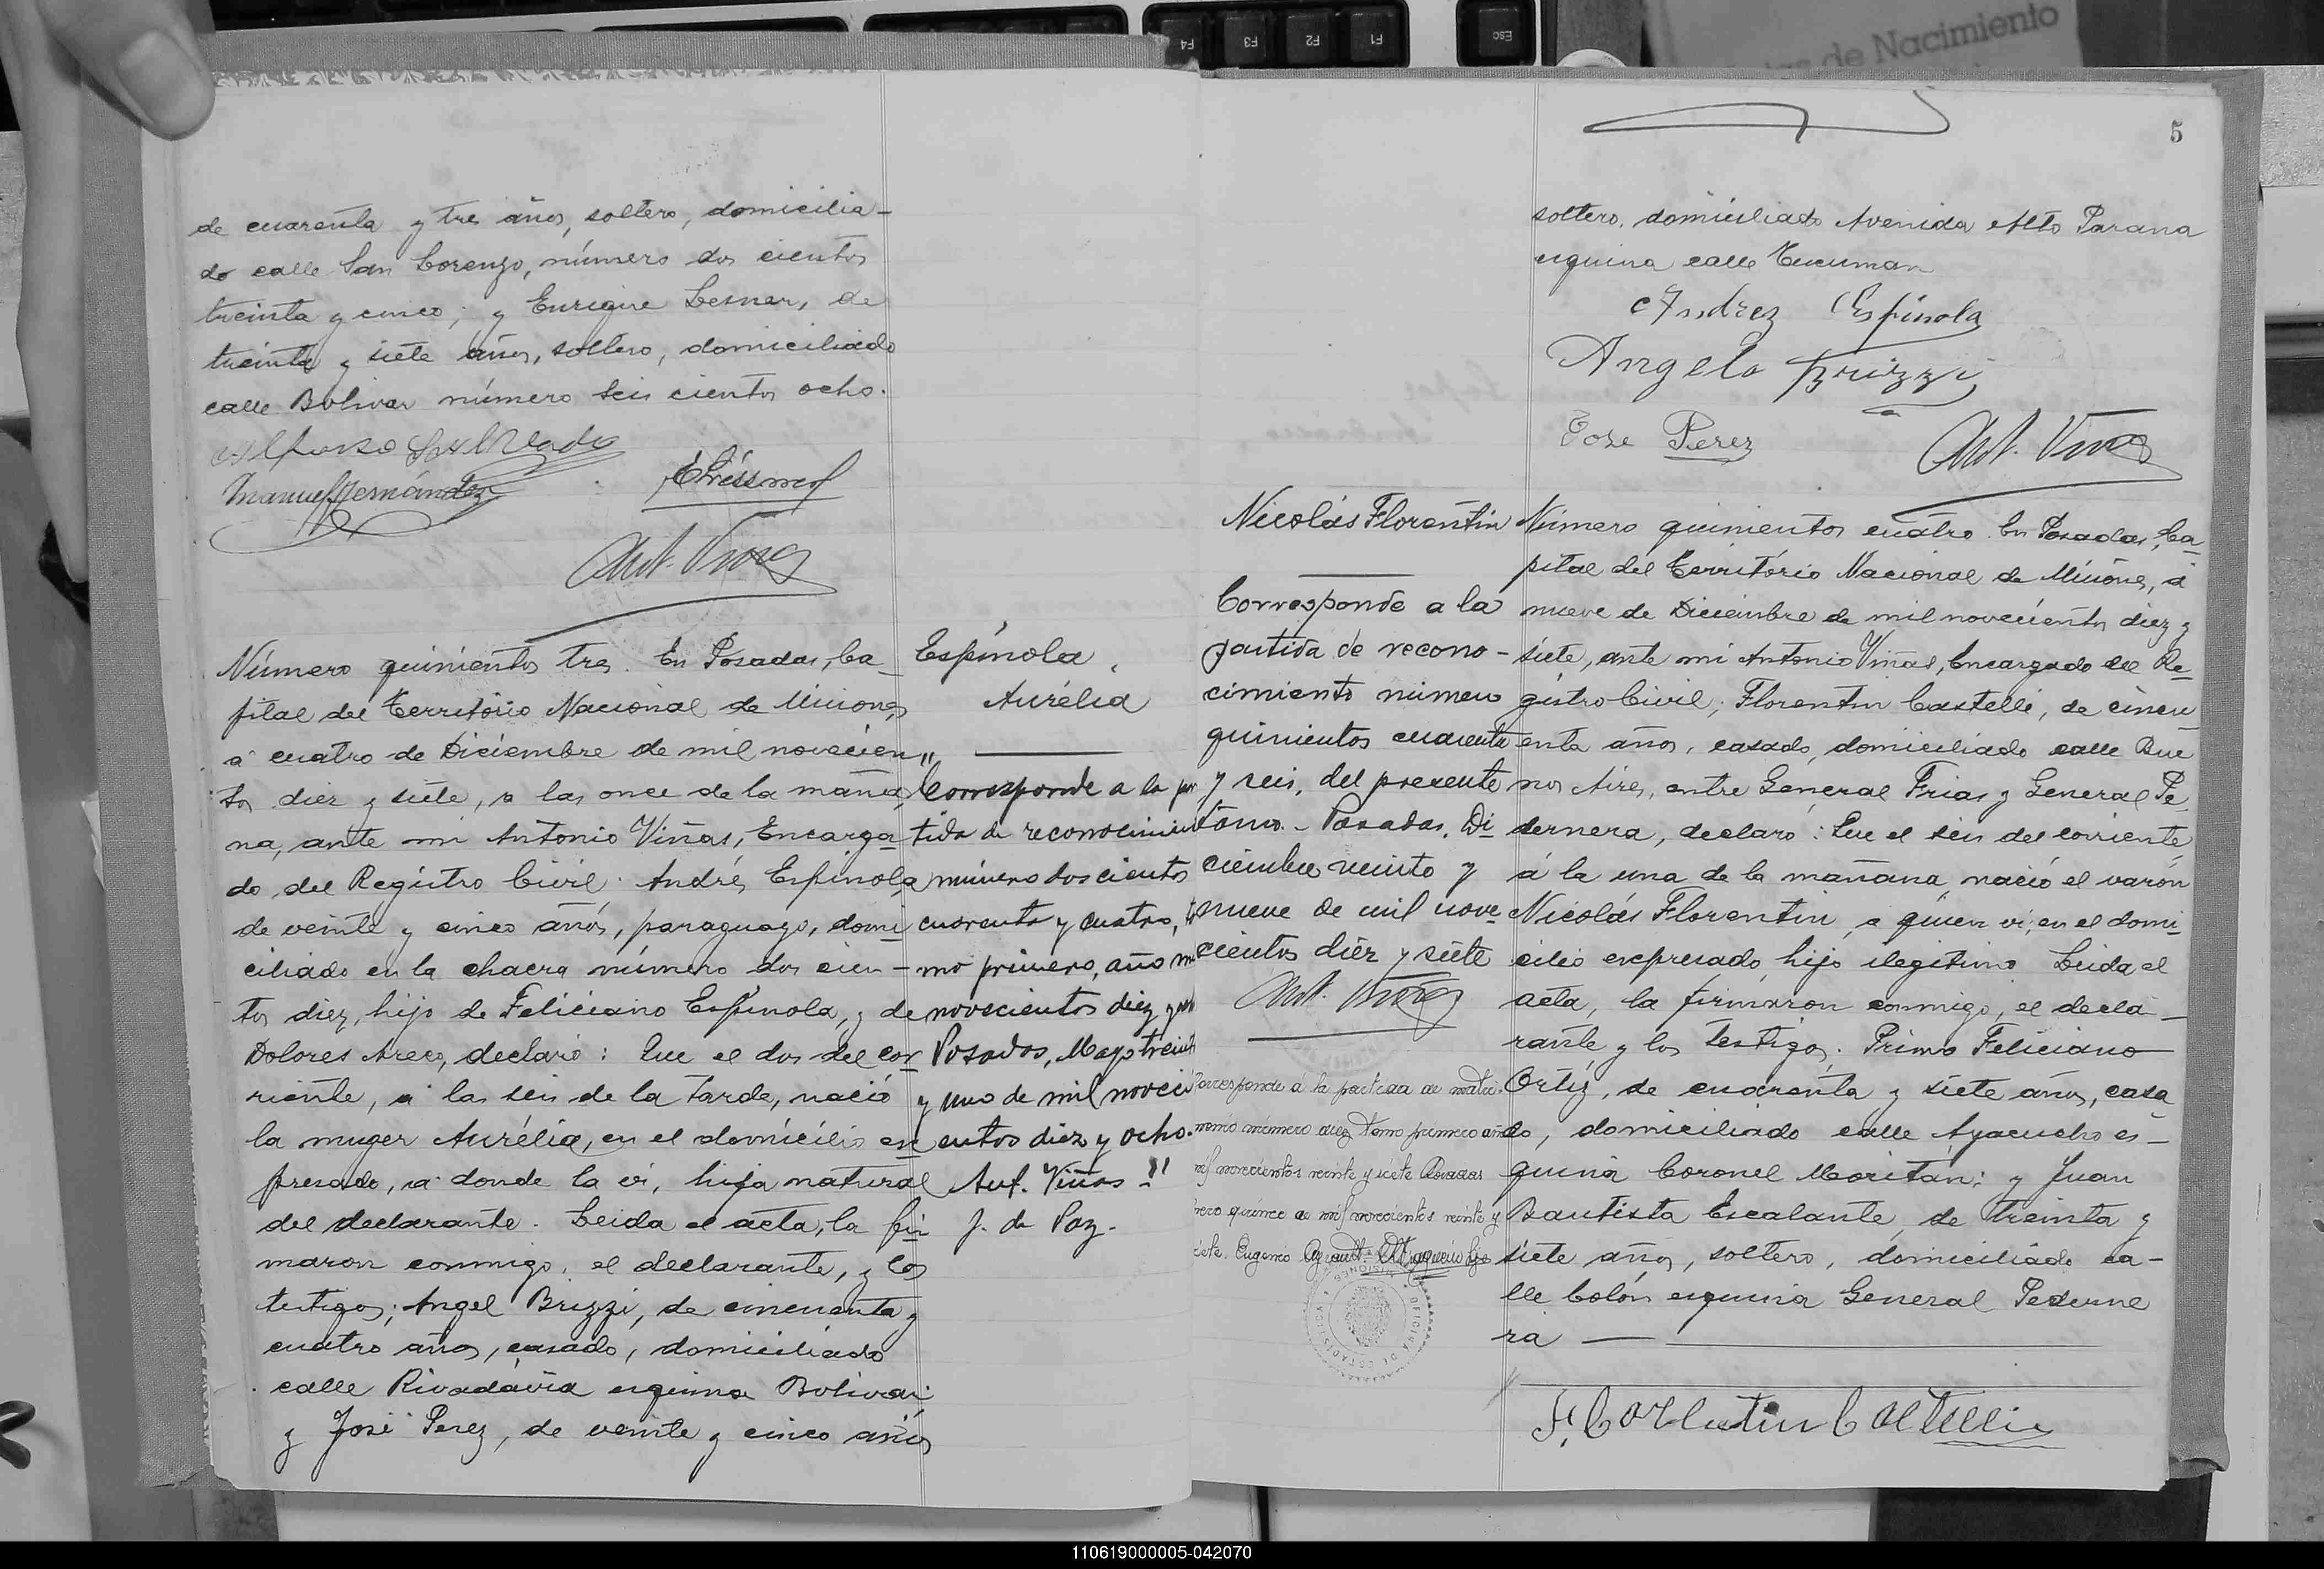 Esc
F1
F2
F3
F4
de Nacimiento
de cuarenta y tres años, soltero, domicilia-
do calle San Lorenzo, número dos cientos
treinta y cinco; y Enrique Lesner, de
treinta y siete años, soltero, domiciliado
calle Bolivar número seis cientos ocho.
Manuel Fernández
Ant. Viñas
Número quinientos tres. En Posadas, Ca-
pital del Territorio Nacional de Misiones
á cuatro de Diciembre de mil novecien"
tos diez y siete, a las once de la maña
na, ante mi Antonio Viñas, Encarga
do del Registro Civil: Andrés Espinola
de veinte y cinco años, paraguayo, domi
ciliado en la chacra número dos cien-
tos diez, hijo de Feliciano Espinola, y de
Dolores Areco, declaró: Que el dos del cor
riente, a las seis de la tarde, nació
la muger Aurélia, en el domicilio es
presado, a donde la vi, hija natural
del declarante. Leida el acta, la fir
maron conmigo, el declarante, y los
testigos; Angel Brizzi, de cincuenta y
cuatro años, casado, domiciliado
calle Rivadavia esquina Bolivar;
y José Perez, de veinte y cinco años
Espínola,
Aurélia
Corresponde a la par
tida de reconocimien
número doscientos
cuarenta y cuatro, to
mo primero, año m
novecientos diez y
Posadas, Mayo treint
y uno de mil noveci
entos diez y ocho.
Ant. Viñas
J. de Paz.
5
soltero, domiciliado Avenida Alto Parana
esquina calle Tucuman
Andrez Espinola
Angelo Brizzi
Jose Perez
Ant. Viñas
Nicolás Florentin
Corresponde a la
partida de recono-
cimiento número
quinientos cuarenta
y seis, del presente
tomo. - Posadas, Di
ciembre veinte y
nueve de mil nove
cientos diez y siete
Ant. Viñas
Corresponde á la partida de matri-
monio número diez Tomo primero año
mil novecientos veinte y siete Posadas
nero quince de mil novecientos veinte y
siete. Eugenio
OFICINA DE ESTADISTICA
MISIONES
Número quinientos cuatro. En Posadas, Ca-
pital del Territorio Nacional de Misiones, á
nueve de Diciembre de mil novecientos diez y
siete, ante mi Antonio Viñas, Encargado del Re-
gistro Civil; Florentin Castelli, de cincu
enta años, casado, domiciliado calle Bue
nos Aires, entre General Frias y General Pe
dernera, declaró: Que el seis del corriente
á la una de la mañana, nació el varon
Nicolás Florentin, a quien vi, en el domi-
cilio expresado, hijo ilegitimo. Leida el
acta, la firmaron conmigo, el decla-
rante y los testigos. Primo Feliciano
Ortiz, de cuarenta y siete años, casa
do, domiciliado calle Ayacucho es-
quina Coronel Moritán; y Juan
Bautista Escalante, de treinta y
siete años, soltero, domiciliado ca-
lle Colón esquina General Pederne
ra
110619000005-042070